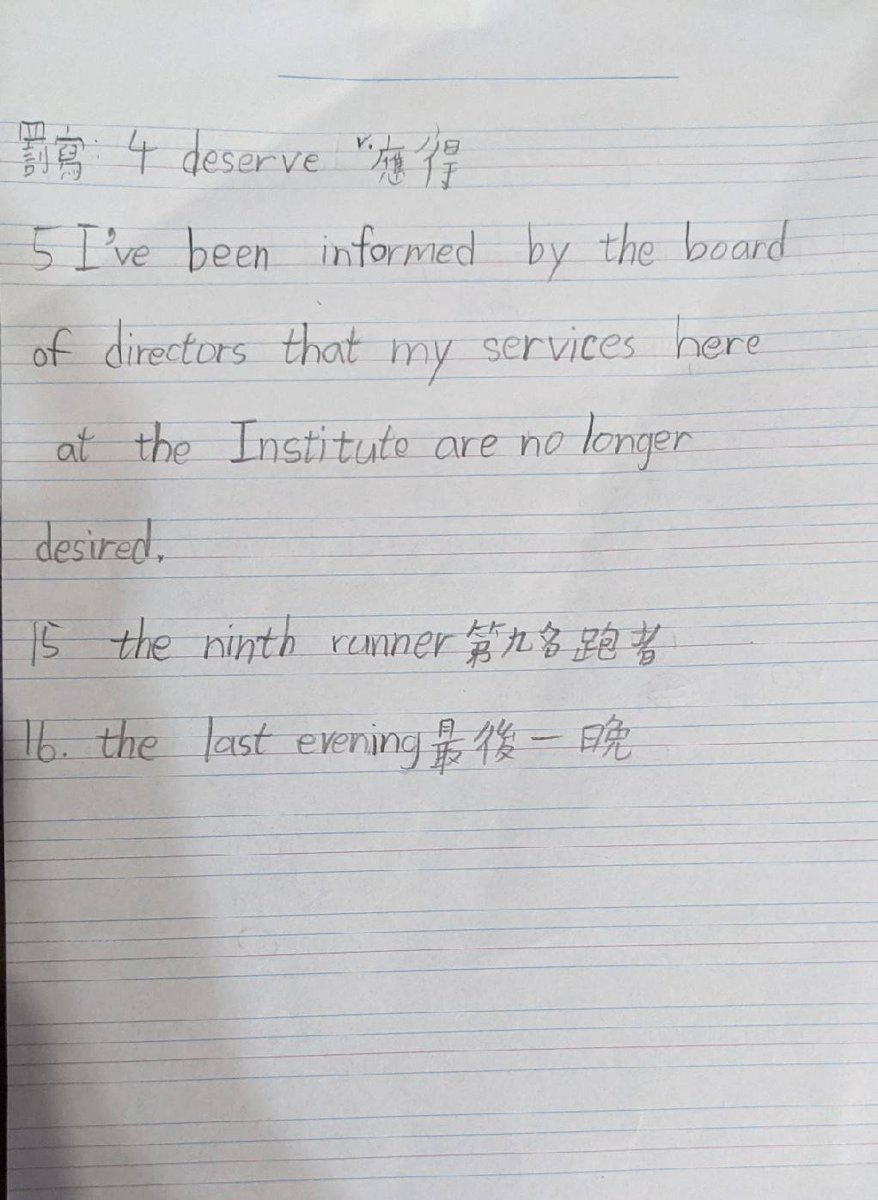 罰寫: 4 deserve v. 應得
5 I've been informed by the board
of directors that my services here
at the Institute are no longer
desired.
15 the ninth runner 第九名跑者
16. the last evening 最後一晚